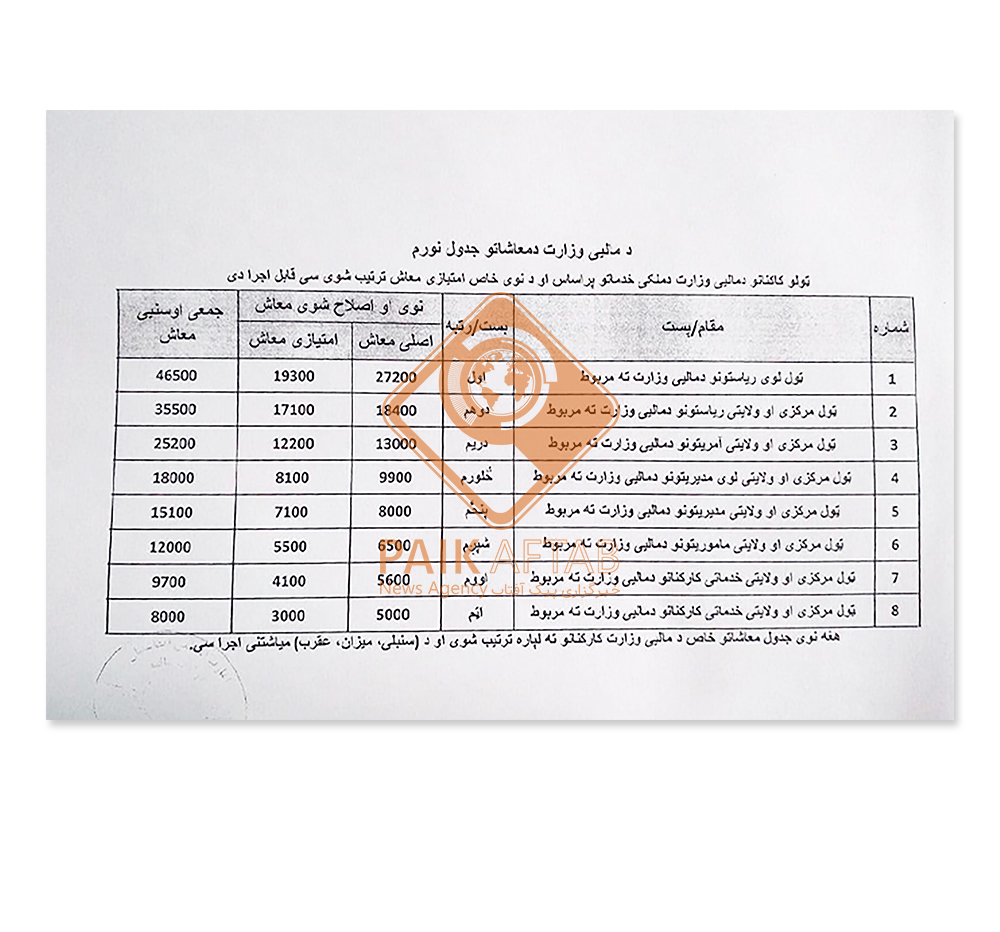 د مالیی وزارت دمعاشاتو جدول نورم
ټولو کاکنانو دمالیی وزارت دملکي خدماتو پراساس او د نوی خاص امتیازی معاش ترتیب شوی سی قابل اجرا دی
شماره مقام/پست بست/رتبه نوی او اصلاح شوی معاش جمعی اوسنیی معاش
اصلی معاش امتیازی معاش
1 ټول لوی ریاستونو دمالیی وزارت ته مربوط اول 27200 19300 46500
2 ټول مرکزی او ولایتی ریاستونو دمالیی وزارت ته مربوط دوهم 18400 17100 35500
3 ټول مرکزی او ولایتی آمریتونو دمالیی وزارت ته مربوط دریم 13000 12200 25200
4 ټول مرکزی او ولایتی لوی مدیریتونو دمالیی وزارت ته مربوط څلورم 9900 8100 18000
5 ټول مرکزی او ولایتی مدیریتونو دمالیی وزارت ته مربوط پنځم 8000 7100 15100
6 ټول مرکزی او ولایتی ماموریتونو دمالیی وزارت ته مربوط شپږم 6500 5500 12000
7 ټول مرکزی او ولایتی خدماتی کارکنانو دمالیی وزارت ته مربوط اووم 5600 4100 9700
8 ټول مرکزی او ولایتی خدماتی کارکنانو دمالیی وزارت ته مربوط اتم 5000 3000 8000
هغه نوی جدول معاشاتو خاص د مالیی وزارت کارکنانو ته لپاره ترتیب شوی او د (سنبلی، میزان، عقرب) میاشتنی اجرا سی.
PAIK AFTAB
خبرگزاری پیک آفتاب News Agency